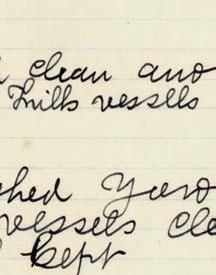 clean and
Milk vessels
shed Yard
vessels cle
kept